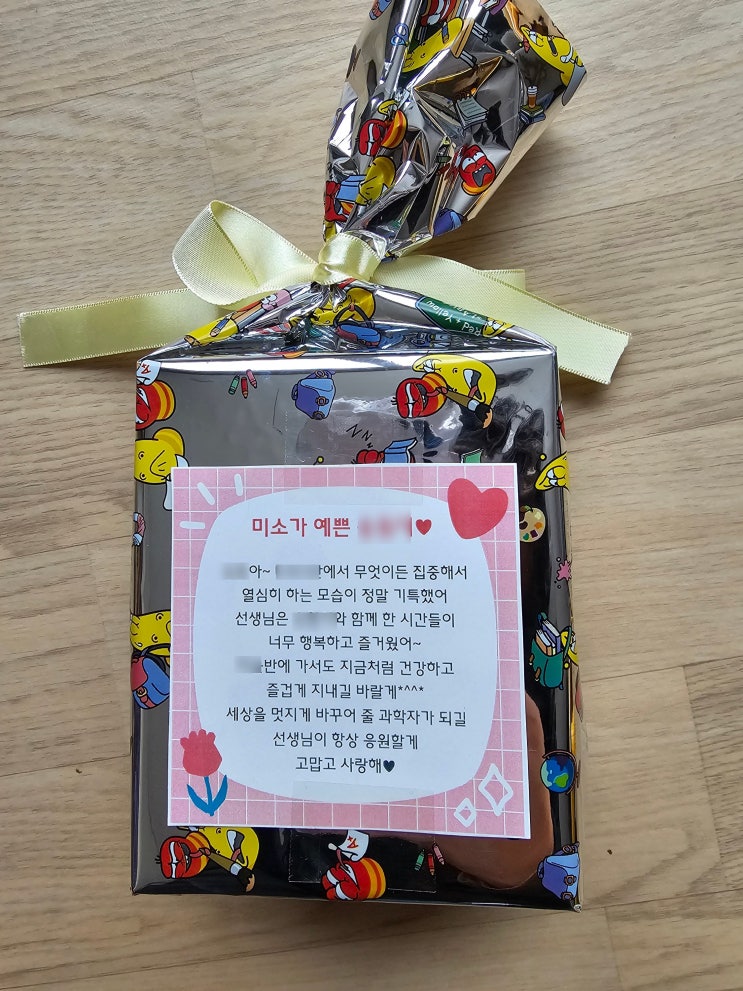 Red & Yellow
미소가 예쁜 ♥
아~ 에서 무엇이든 집중해서
열심히 하는 모습이 정말 기특했어
선생님은 와 함께 한 시간들이
너무 행복하고 즐거웠어~
반에 가서도 지금처럼 건강하고
즐겁게 지내길 바랄게*^^*
세상을 멋지게 바꾸어 줄 과학자가 되길
선생님이 항상 응원할게
고맙고 사랑해♥